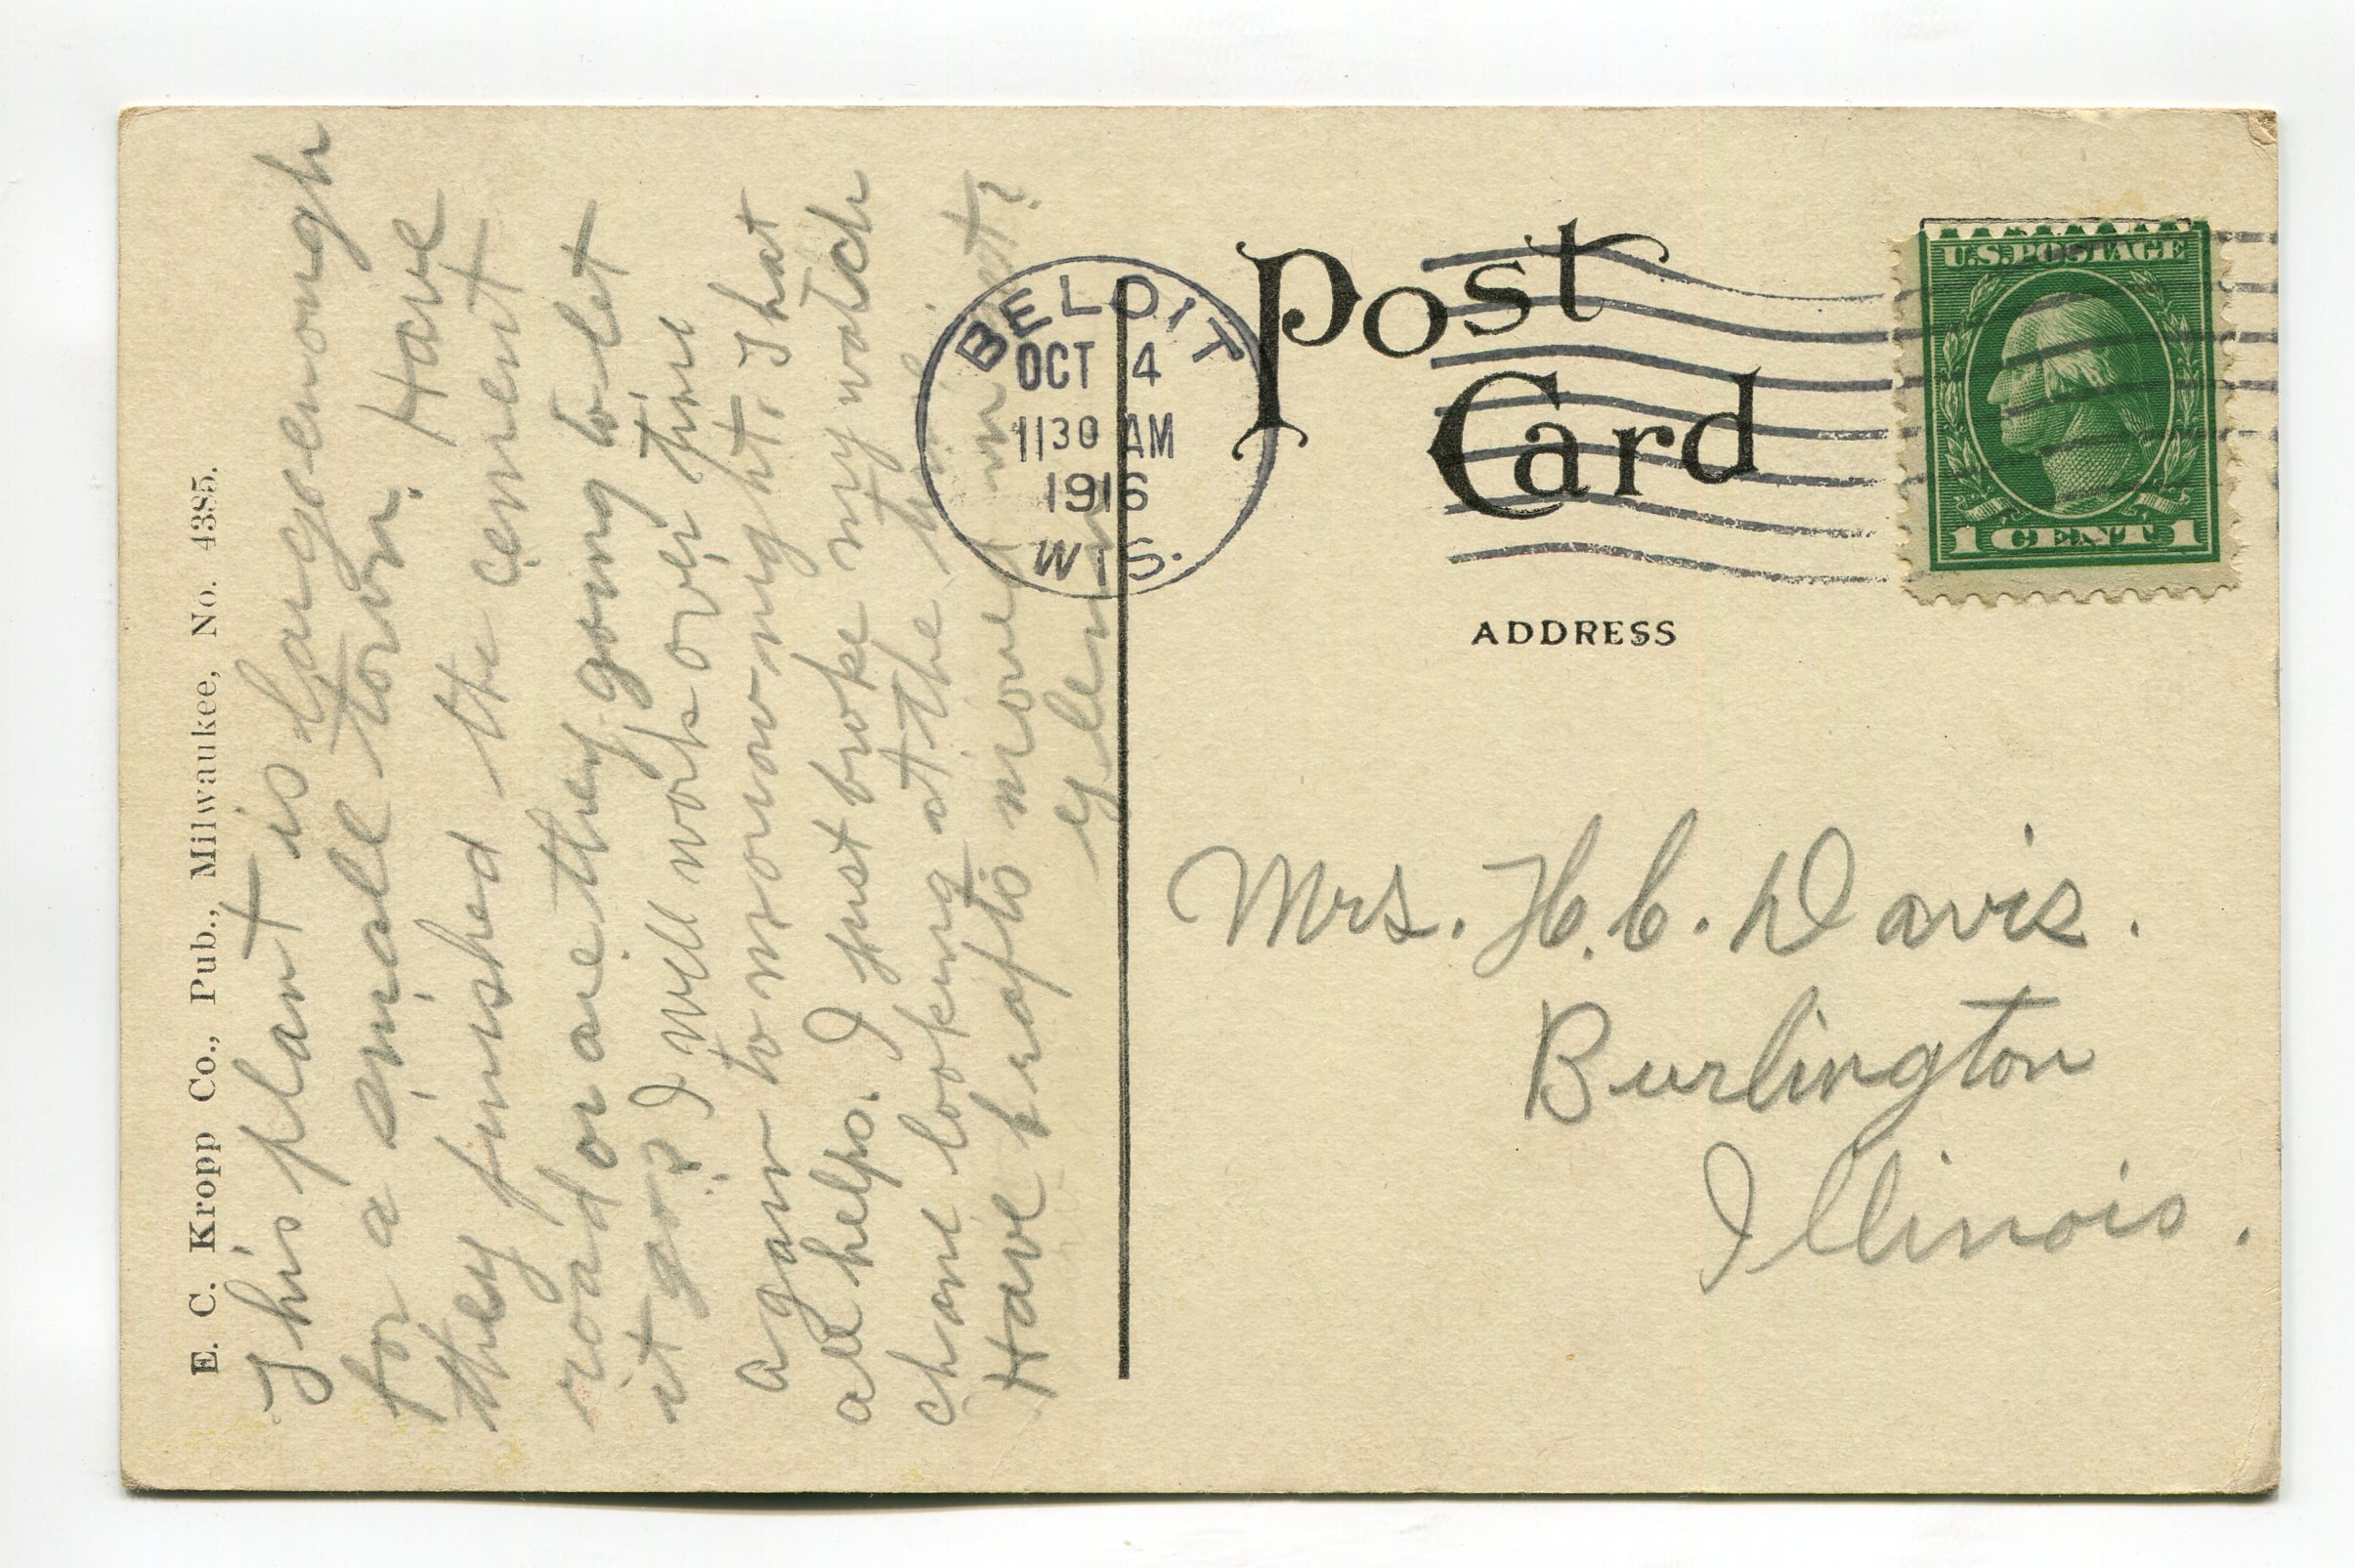 E. C. Kropp Co., Pub., Milwaukee, No. 4385.
This plant is large enough
for a small town. Have
they finished the cement
road or are they going to let
it go? I will work over time
again tomorrow night. That
all helps. I just broke my watch
chane looking at the
Have kraft's moved yet?
Glenn
BELOIT
OCT 4
1130 AM
1916
WIS.
Post
Card
U.S. POSTAGE
1 CENT 1
ADDRESS
Mrs. H. C. Davis.
Burlington
Illinois.